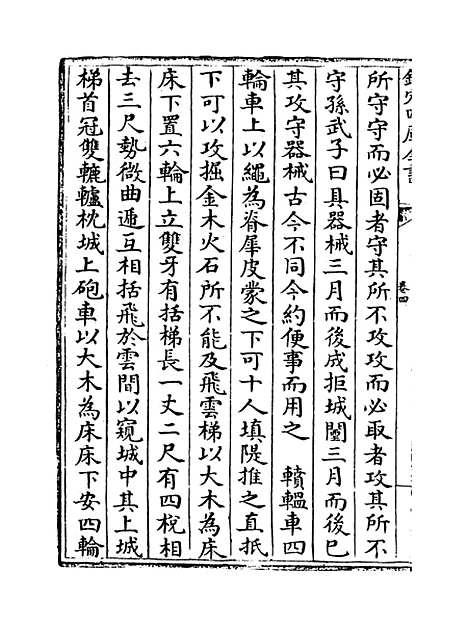 欽定四庫全書
卷四
所守守而必固者守其所不攻攻而必取者攻其所不
守孫武子曰具器械三月而後成拒城闉三月而後已
其攻守器械古今不同今約便事而用之　轒輼車四
輪車上以繩為脊犀皮蒙之下可十人填隍推之直抵
下可以攻掘金木火石所不能及飛雲梯以大木為床
床下置六輪上立雙牙有括梯長一丈二尺有四桄相
去三尺勢微曲遞互相括飛於雲間以窺城中其上城
梯首冠雙轆轤枕城上砲車以大木為床床下安四輪